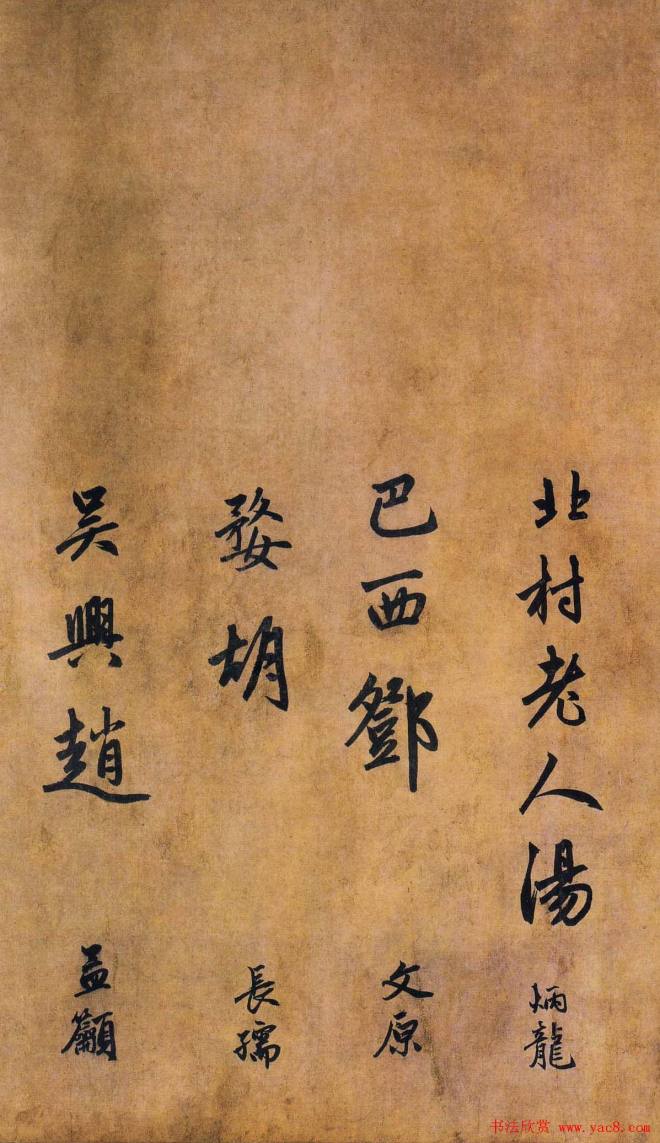 北村老人湯炳龍
巴西鄧文原
婺胡長孺
吴興趙孟籲
书法欣赏 www.yac8.com